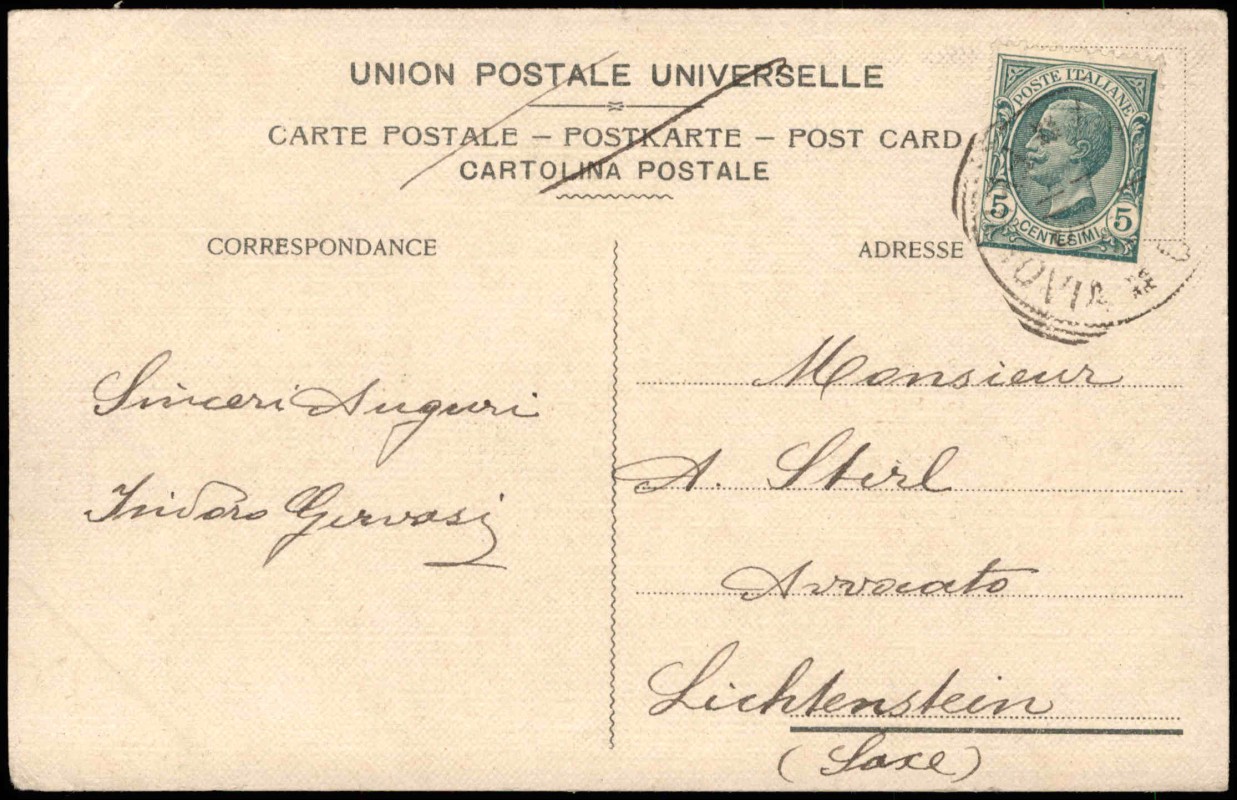 UNION POSTALE UNIVERSELLE
CARTE POSTALE – POSTKARTE – POST CARD
CARTOLINA POSTALE
POSTE ITALIANE
5 CENTESIMI 5
CORRESPONDANCE
ADRESSE
Sinceri Auguri
Isidoro Gervasi
Monsieur
A. Stirl
Avvocato
Lichtenstein
(Saxe)